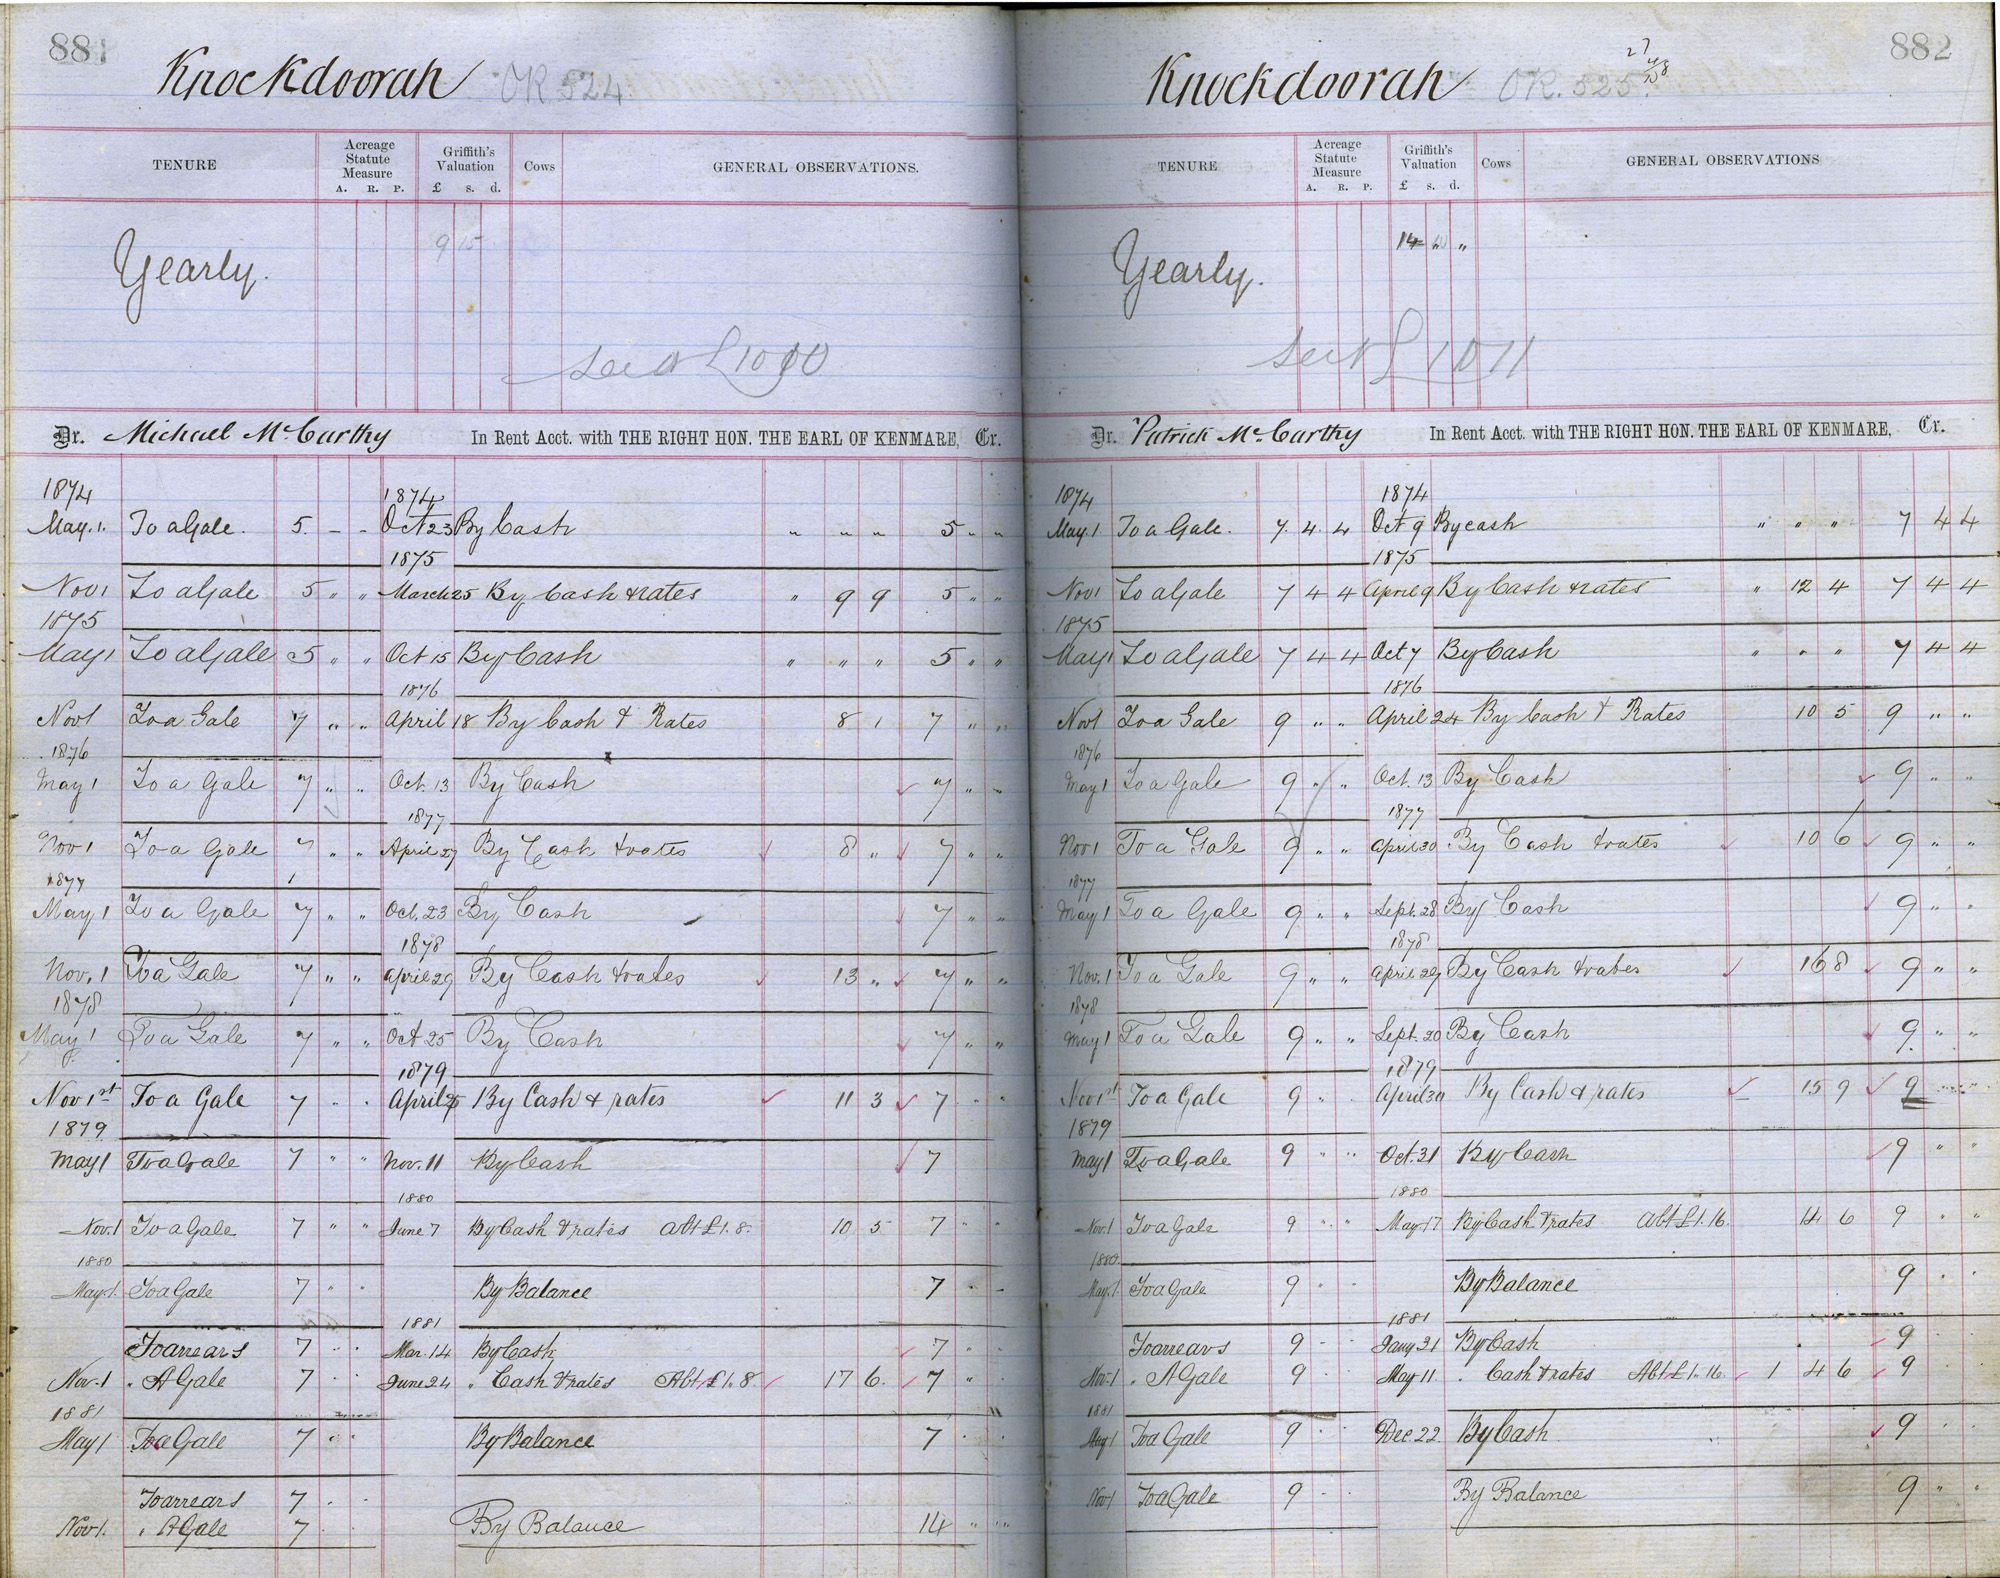 881
Knockdoorah OK 524
TENURE Acreage Statute Measure A. R. P. Griffith's Valuation £ s. d. Cows GENERAL OBSERVATIONS.
Yearly. 9 15
Dr. Michael McCarthy In Rent Acct. with THE RIGHT HON. THE EARL OF KENMARE, Cr.
1874 1874
May. 1. To a Gale. 5. - - Oct 23 By Cash " " " 5 " "
1875
Nov 1 To a Gale 5 " " March 25 By Cash & rates " 9 9 5 " "
1875
May 1 To a Gale 5 " " Oct 15 By Cash " " " 5 " "
1876
Nov 1 To a Gale 7 " " April 18 By Cash & Rates 8 1 7 " "
1876
May 1 To a Gale 7 " " Oct. 13 By Cash 7 " "
1877
Nov 1 To a Gale 7 " " April 27 By Cash & rates 8 " 7 " "
1877
May 1 To a Gale 7 " " Oct. 23 By Cash 7 " "
1878
Nov. 1 To a Gale 7 " " April 29 By Cash & rates 13 " 7 " "
1878
May 1 To a Gale 7 " " Oct 25 By Cash 7 " "
1879
Nov 1st To a Gale 7 " " April By Cash & rates 11 3 7 " "
1879
May 1 To a Gale 7 " " Nov. 11 By Cash 7
1880
Nov. 1 To a Gale 7 " " June 7 By Cash & rates Abt £1. 8. 10 5 7 " "
1880
May. 1. To a Gale 7 " " By Balance 7 " "
1881
To arrears 7 " " Mar. 14 By Cash 7 "
Nov. 1 " A Gale 7 " June 24 " Cash & rates Abt. £1. 8. 17 6. 7 "
1881
May 1 To a Gale 7 " " By Balance 7 " "
To arrears 7 " "
Nov 1. " A Gale 7 " By Balance 14 " "
882
Knockdoorah OK. 525.
TENURE Acreage Statute Measure A. R. P. Griffith's Valuation £ s. d. Cows GENERAL OBSERVATIONS
Yearly. 14 "
Dr. Patrick McCarthy In Rent Acct. with THE RIGHT HON. THE EARL OF KENMARE, Cr.
1874 1874
May. 1 To a Gale. 7. 4. 4 Oct 9 By cash " " " 7 4 4
1875
Nov 1 To a Gale 7 4 4 April 9 By Cash & rates " 12 4 7 4 4
1875
May 1 To a Gale 7 4 4 Oct 7 By Cash " " " 7 4 4
1876
Nov 1 To a Gale 9 " " April 24 By Cash & Rates 10 5 9 " "
1876
May 1 To a Gale 9 " " Oct. 13 By Cash 9 " "
1877
Nov 1 To a Gale 9 " " April 30 By Cash & rates 10 6 9 " "
1877
May 1 To a Gale 9 " " Sept. 28 By Cash 9 " "
1878
Nov. 1 To a Gale 9 " " April 29 By Cash & rates 16 8 9 " "
1878
May 1 To a Gale 9 " " Sept. 20 By Cash 9 " "
1879
Nov 1st To a Gale 9 " April 30 By Cash & rates 15 9 9
1879
May 1 To a Gale 9 " " Oct. 31 By Cash 9 " "
1880
Nov. 1 To a Gale 9 " " May. 17 By Cash & rates Abt £1. 16. 14 6 9 " "
1880.
May. 1 To a Gale 9 " " By Balance 9 " "
1881
To arrears 9 " " Jany 31 By Cash 9
Nov. 1 " A Gale 9 " " May 11 " Cash & rates Abt £1. 16. 1 4 6 9
1881
May 1 To a Gale 9 " " Dec. 22. By Cash 9 " "
Nov 1 To a Gale 9 " " By Balance 9 " "